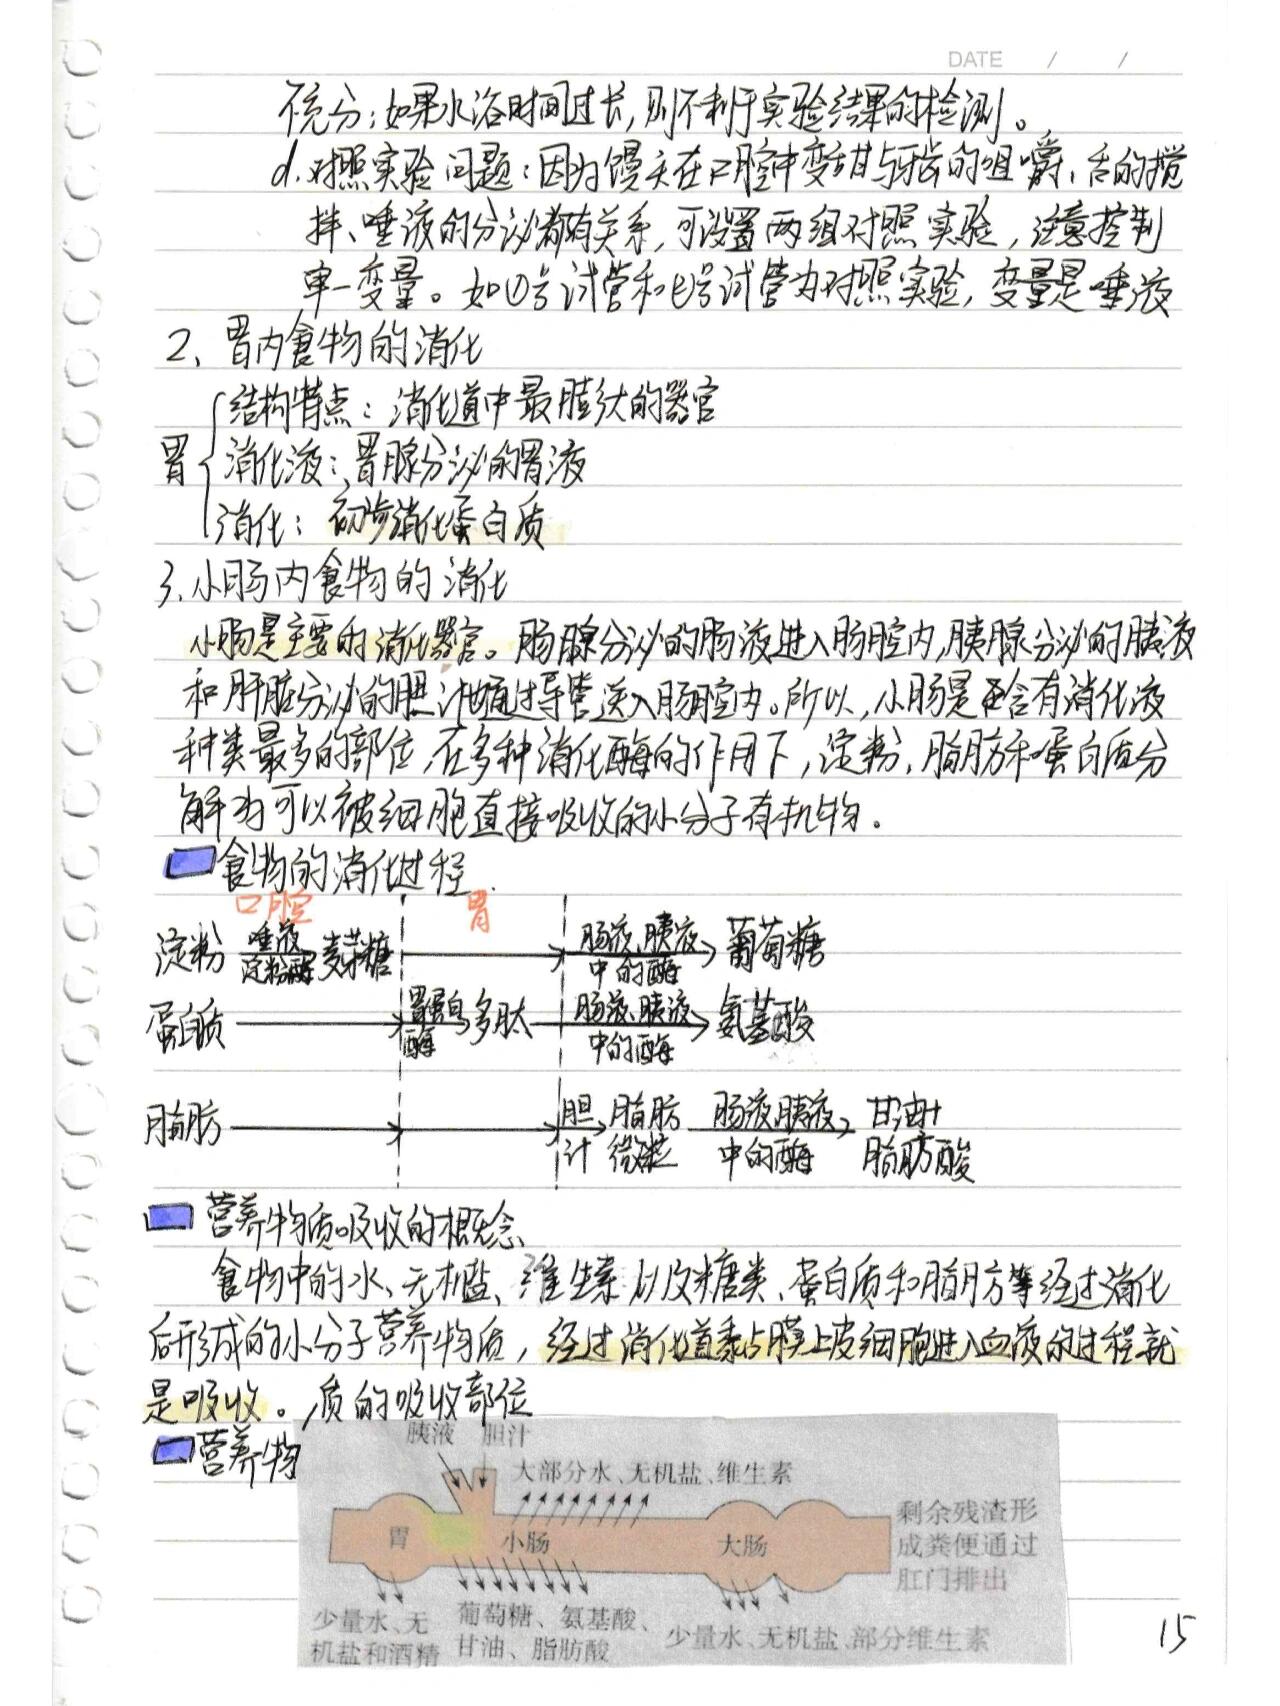 DATE / /
不充分；如果水浴时间过长，则不利于实验结果的检测。
d. 对照实验问题：因为馒头在口腔中变甜与牙齿的咀嚼、舌的搅
拌、唾液的分泌都有关系，可设置两组对照实验，注意控制
单一变量。如①号试管和②号试管为对照实验，变量是唾液
2、胃内食物的消化
结构特点：消化道中最膨大的器官
胃 消化液：胃腺分泌的胃液
消化：初步消化蛋白质
3.小肠内食物的消化
小肠是主要的消化器官。肠腺分泌的肠液进入肠腔内,胰腺分泌的胰液
和肝脏分泌的胆汁也通过导管送入肠腔内。所以,小肠是含有消化液
种类最多的部位,在多种消化酶的作用下,淀粉,脂肪和蛋白质分
解为可以被细胞直接吸收的小分子有机物。
食物的消化过程.
口腔 胃
淀粉 唾液 麦芽糖 肠液、胰液 葡萄糖
淀粉酶 中的酶
蛋白质 胃蛋白 多肽 肠液、胰液 氨基酸
酶 中的酶
脂肪 胆 脂肪 肠液,胰液 甘油+
汁 微粒 中的酶 脂肪酸
营养物质吸收的概念
食物中的水、无机盐、维生素以及糖类、蛋白质和脂肪等经过消化
后形成的小分子营养物质，经过消化道黏膜上皮细胞进入血液的过程就
是吸收。 质的吸收部位
营养物
胰液 胆汁
大部分水、无机盐、维生素
胃 小肠 大肠
剩余残渣形
成粪便通过
肛门排出
少量水、无
机盐和酒精
葡萄糖、氨基酸、
甘油、脂肪酸
少量水、无机盐、部分维生素
15